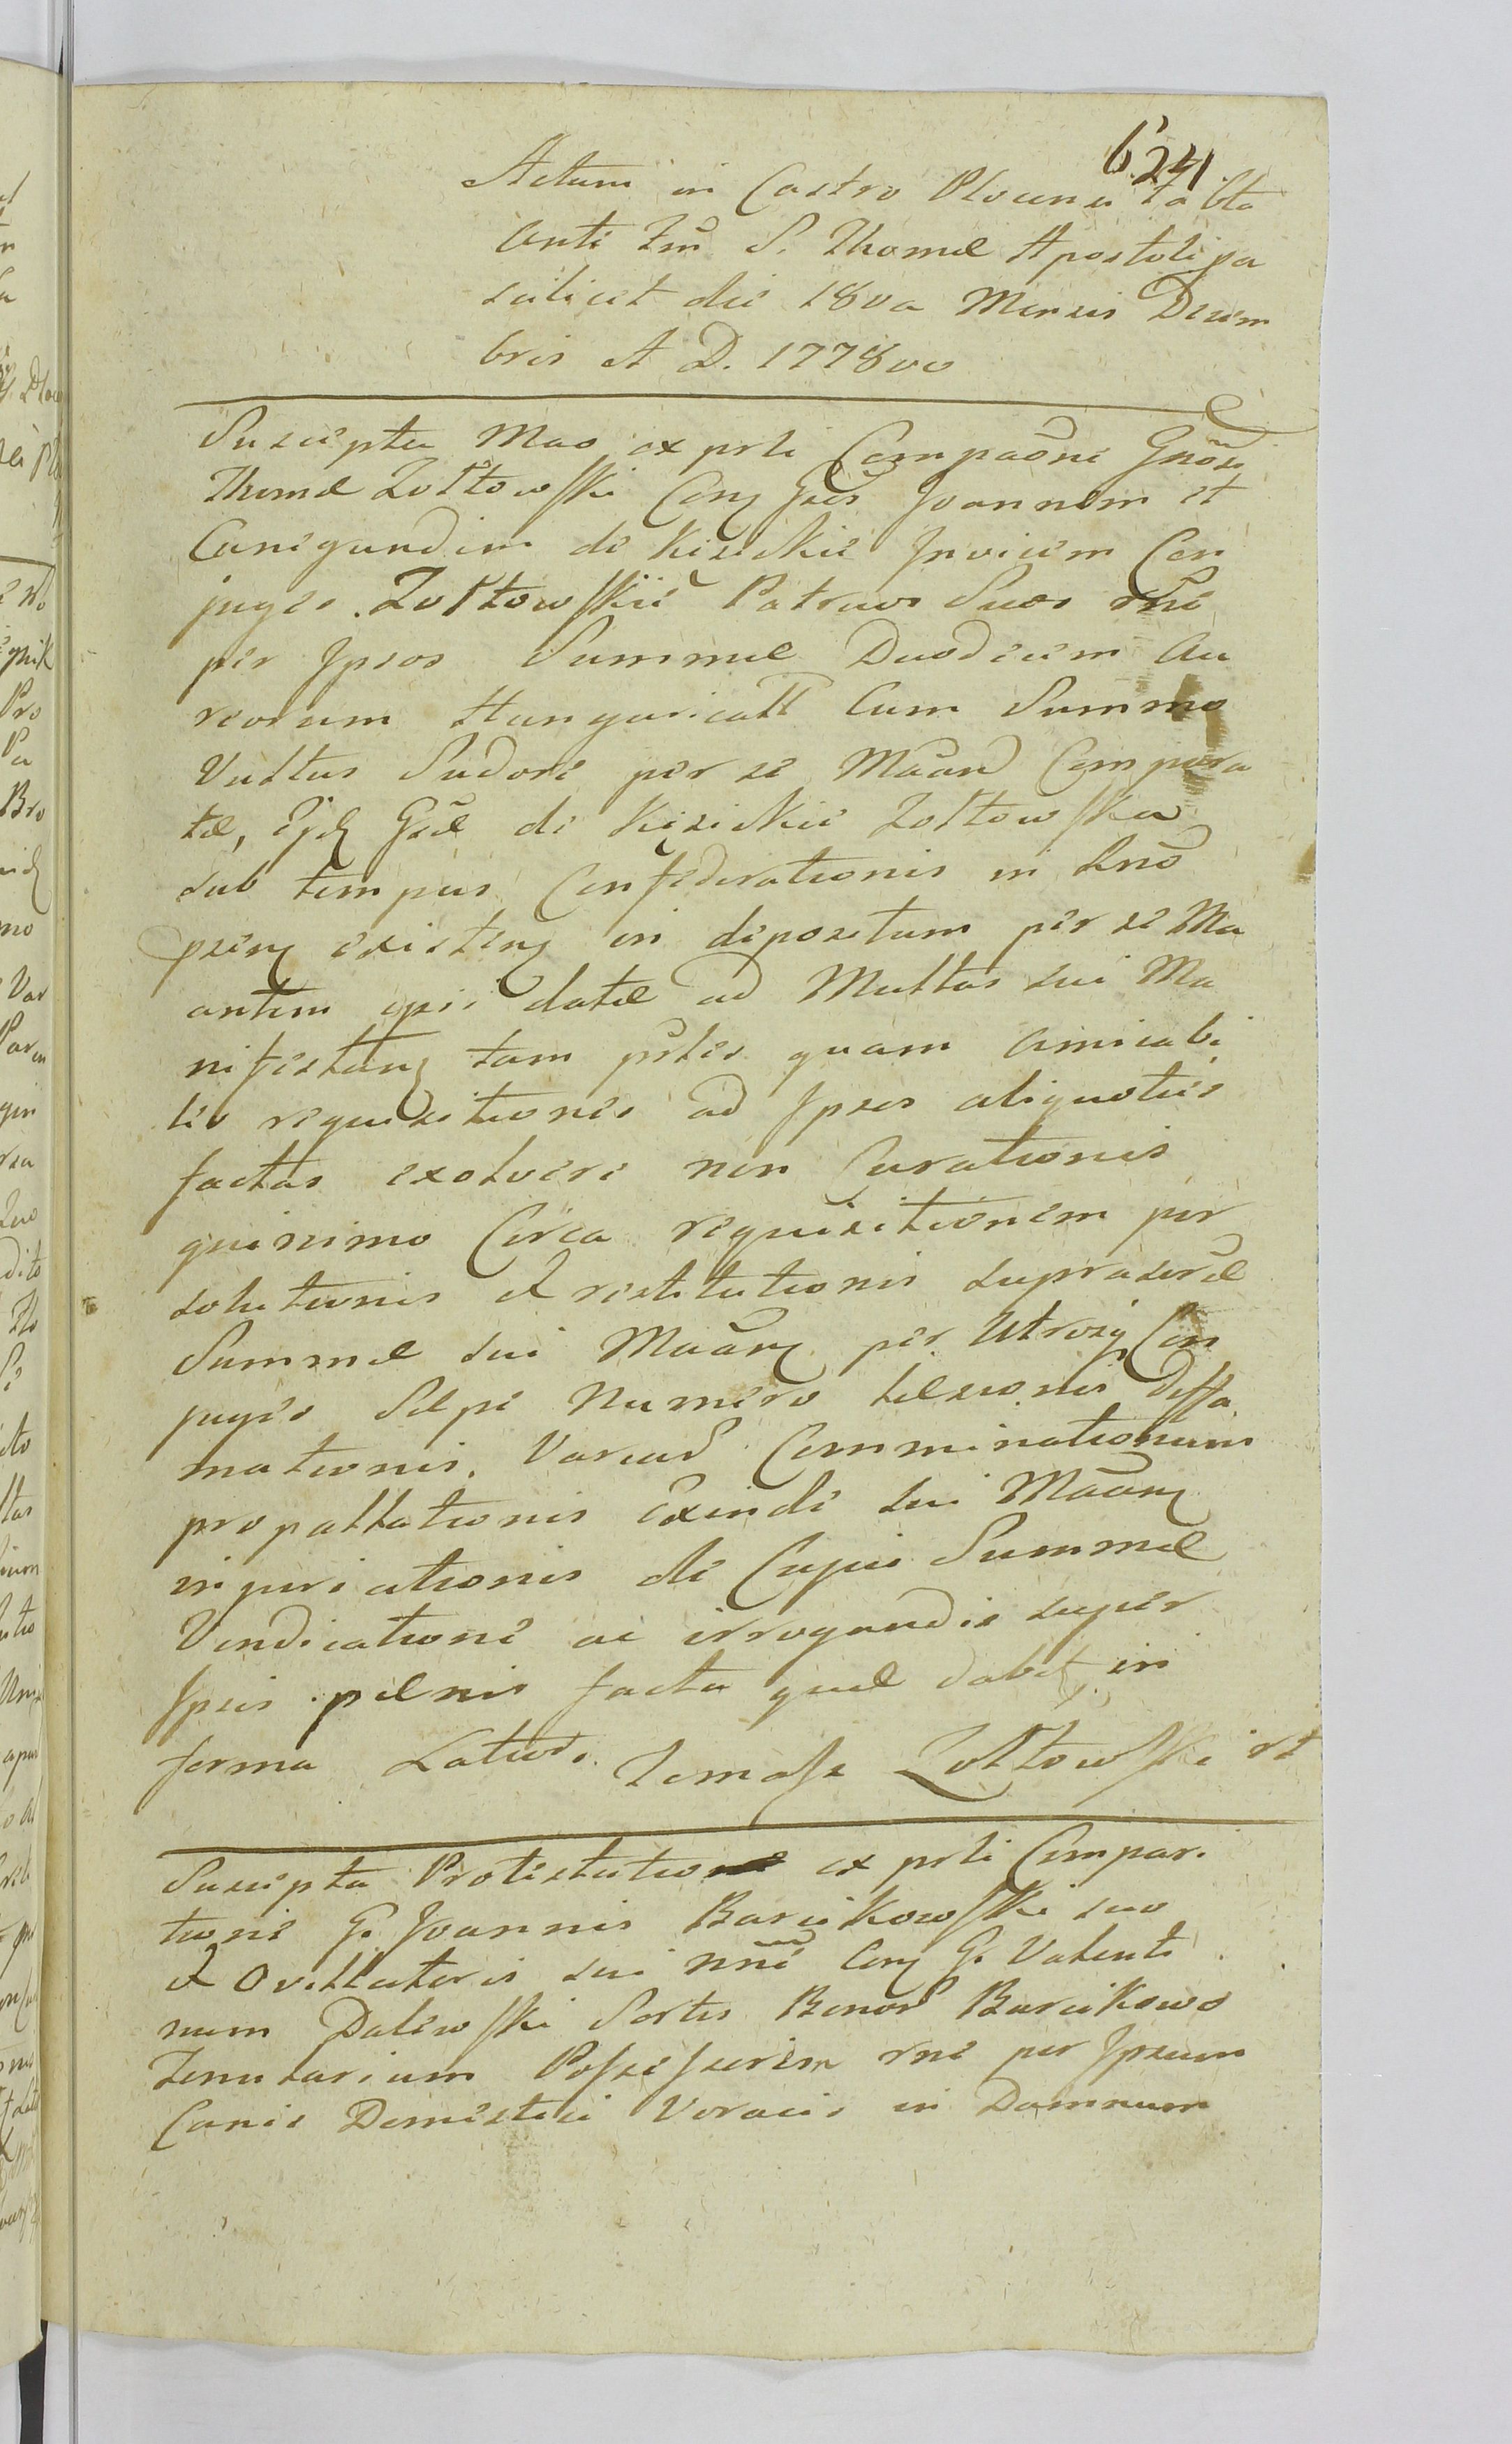 6.241
Actum in Castro Plocensi Sabbto
ante Fm̃ S. Thomæ Apostoli pa
scilicet die 18va Mensis Decem
bris A D. 1778vo
Suscepta Mao ex prte Compaõne Gñosi
Thomæ Zołtowski Conẓ Gsos Joannem et
Cunegundem de Kisickie Invicem Con
juges Zołtowskie Patruos Suos rñe
per Ipsos Summæ Duodecim Au
reorum Hungaricall Cum Summo
Vultus Sudore per se Mãand Compara
tæ, Gsæ de Kisickie Zołtowska
sub tempus Confederationis in Rno
existenẓ in depositum per se Ma
antem ipsi datæ ad Multas sui Ma
nifestanẓ tam prles quam amicabi
les requisitiones ad Ipsos aliquoties
factas exolvere non Curationis
quinimo Circa requisitionem per
solutionis et restitutionis suprascræ
Summæ sui Mãanẓ per Utrosq Con
juges Sæpe Numero læsionis Diffa
mationis, Variar Comminationum
propallationis Exinde sui Mãanẓ
injuriationis de Cujus Summæ
Vindicatione ac irrogandis super
Ipsis pænis facta quæ dabit in
forma Latiori. Tomasz Zołtowski
Suscepta Protestatio ex prte Compari
tione G. Joannis Barcikowski suo
et Ovillatoris sui nñe Conẓ G. Valenti
num Dalewski Sortis Bonor Barcikowo
Tenutarium Possessorem rne per Ipsum
Canis Domestici Voracis in Damnum